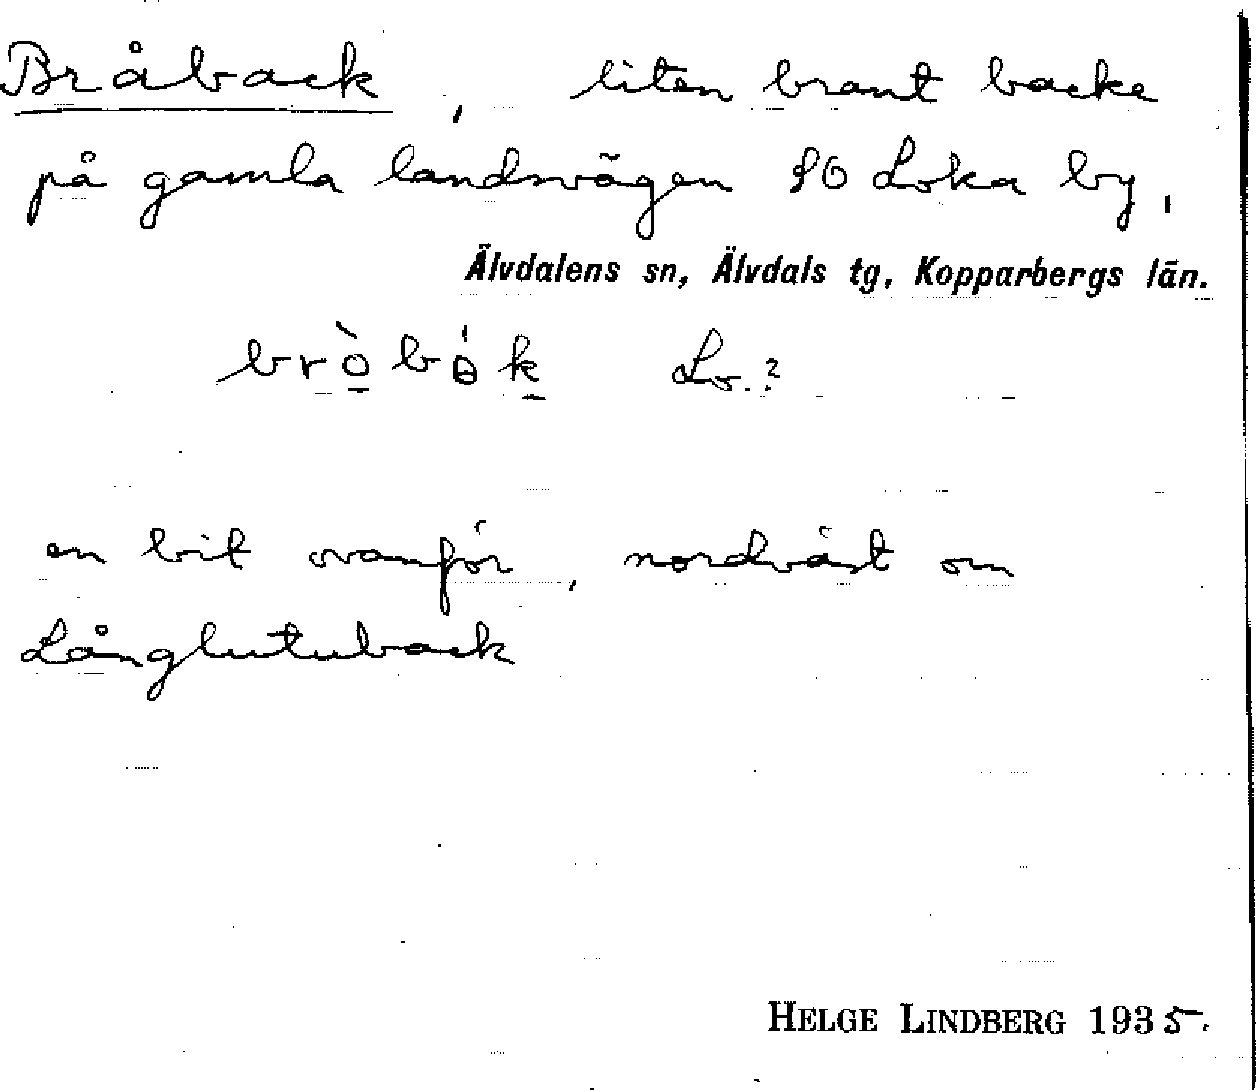 Bråback, liten brant backe
på gamla landsvägen SO Loka by,
Älvdalens sn, Älvdals tg, Kopparbergs län.
Lo.?
en bit ovanför, nordväst om
Långlutuback
HELGE LINDBERG 1935.